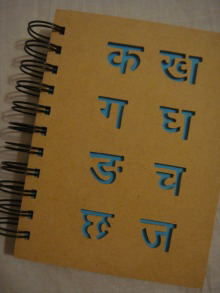 क ख
ग घ
ङ च
छ ज